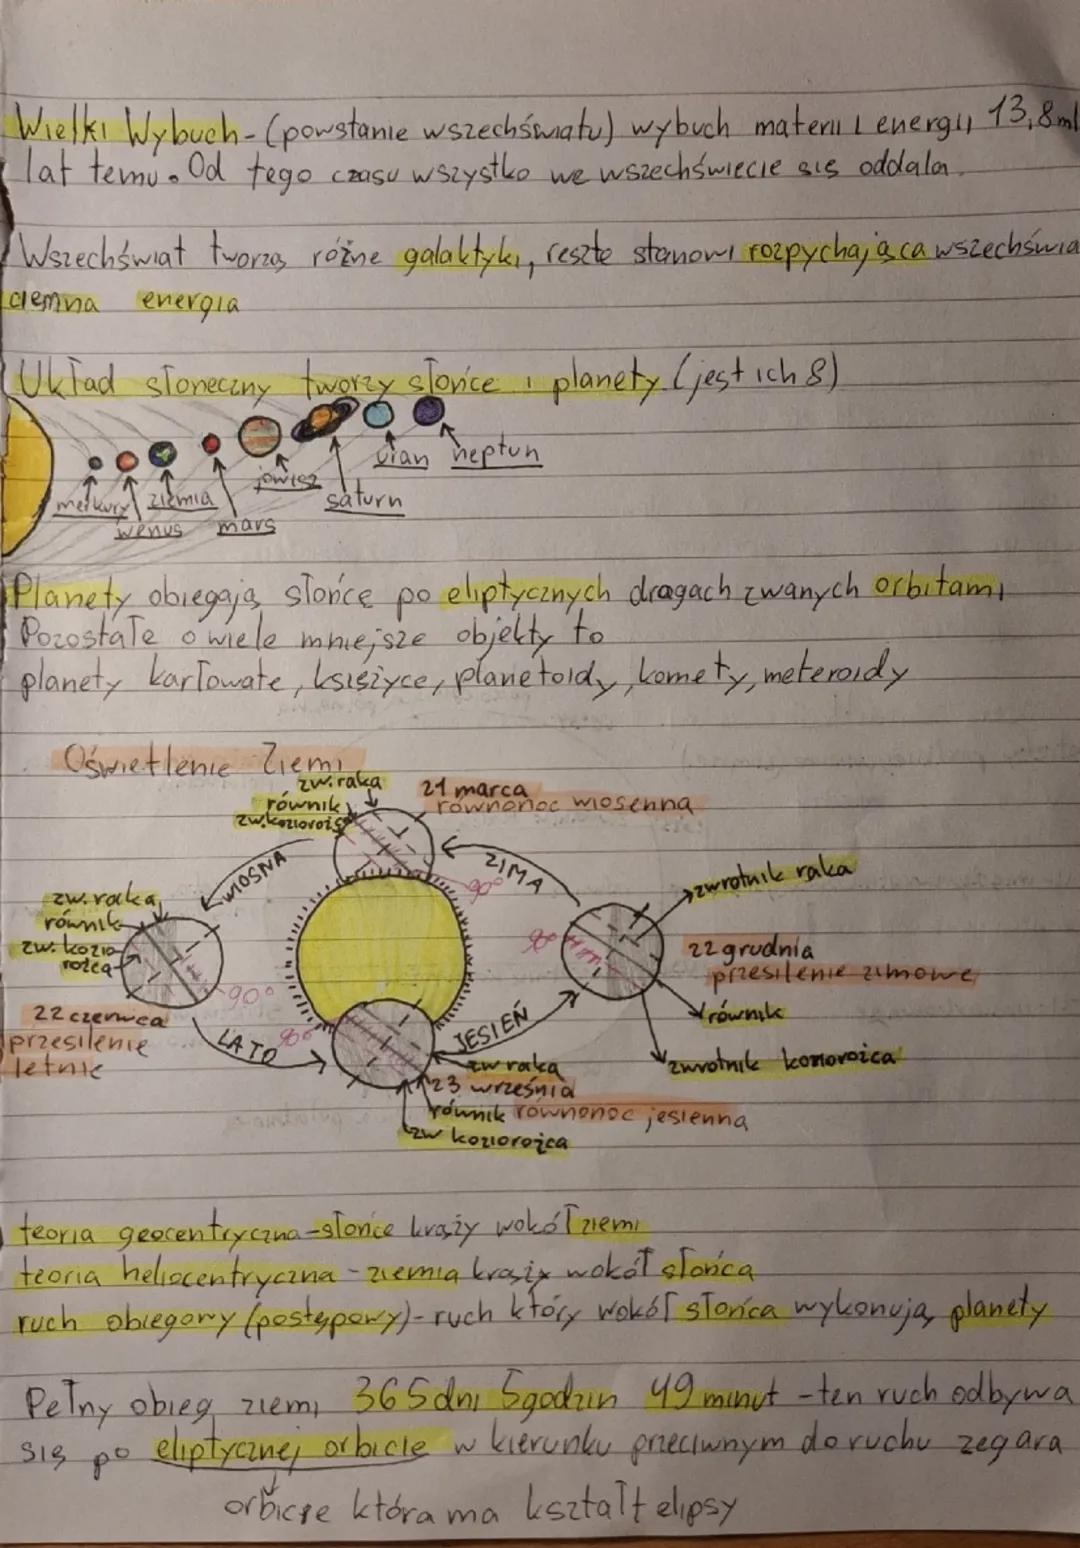 Wielki Wybuch - (powstanie wszechświatu) wybuch materii i energii 13,8 ml
lat temu. Od tego czasu wszystko we wszechświecie się oddala.
Wszechświat tworzą różne galaktyki, resztę stanowi rozpychająca wszechświa
ciemna energia
Układ słoneczny tworzy słońce i planety (jest ich 8)
merkury
wenus
ziemia
mars
jowisz
saturn
uran
neptun
Planety obiegają słońce po eliptycznych drogach zwanych orbitami
Pozostałe o wiele mniejsze objekty to
planety karłowate, księżyce, planetoidy, komety, meteroidy
Oświetlenie Ziemi
zw. raka
równik
zw. koziorożc
21 marca
równonoc wiosenna
WIOSNA
ZIMA
90°
zw. raka
równik
zw. kozio
rożca
90°
22 czerwca
przesilenie
letnie
zwrotnik raka
90°
22 grudnia
przesilenie zimowe
równik
zwrotnik koziorożca
LATO
90°
JESIEŃ
zw raka
23 września
równik równonoc jesienna
zw koziorożca
teoria geocentryczna - słońce krąży wokół ziemi
teoria heliocentryczna - ziemia krąży wokół słońca
ruch obiegowy (postępowy) - ruch który wokół słońca wykonują planety
Pełny obieg ziemi 365 dni 5 godzin 49 minut - ten ruch odbywa
się po eliptycznej orbicie w kierunku przeciwnym do ruchu zegara
orbicie która ma kształt elipsy